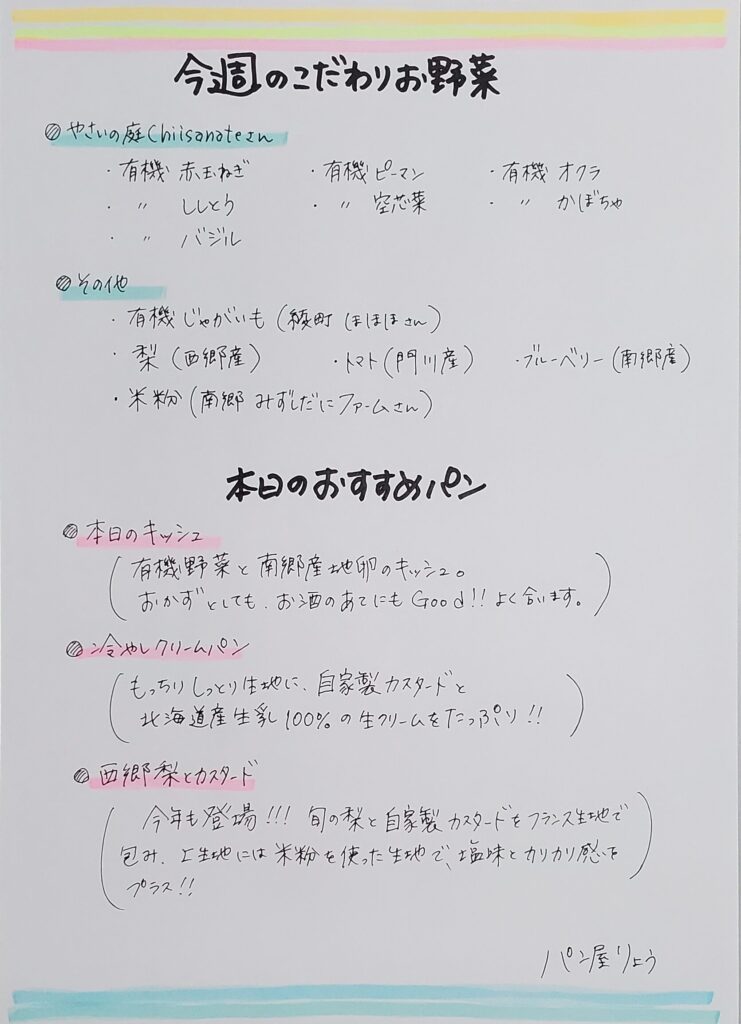 今週のこだわりお野菜
やさいの庭Chiisanateさん
・有機 赤玉ねぎ ・有機 ピーマン ・有機 オクラ
・〃 ししとう ・〃 空芯菜 ・〃 かぼちゃ
・〃 バジル
その他
・有機じゃがいも(綾町 ほほほさん)
・梨(西郷産) ・トマト(門川産) ・ブルーベリー(南郷産)
・米粉(南郷 みずしだにファームさん)
本日のおすすめパン
本日のキッシュ
(有機野菜と南郷産地卵のキッシュ。
おかずとしても、お酒のあてにもGood!!よく合います。)
冷やしクリームパン
(もっちりしっとり生地に、自家製カスタードと
北海道産生乳100%の生クリームをたっぷり!!)
西郷梨とカスタード
(今年も登場!!!旬の梨と自家製カスタードをフランス生地で
包み、上生地には米粉を使った生地で、塩味とカリカリ感を
プラス!!)
パン屋りょう